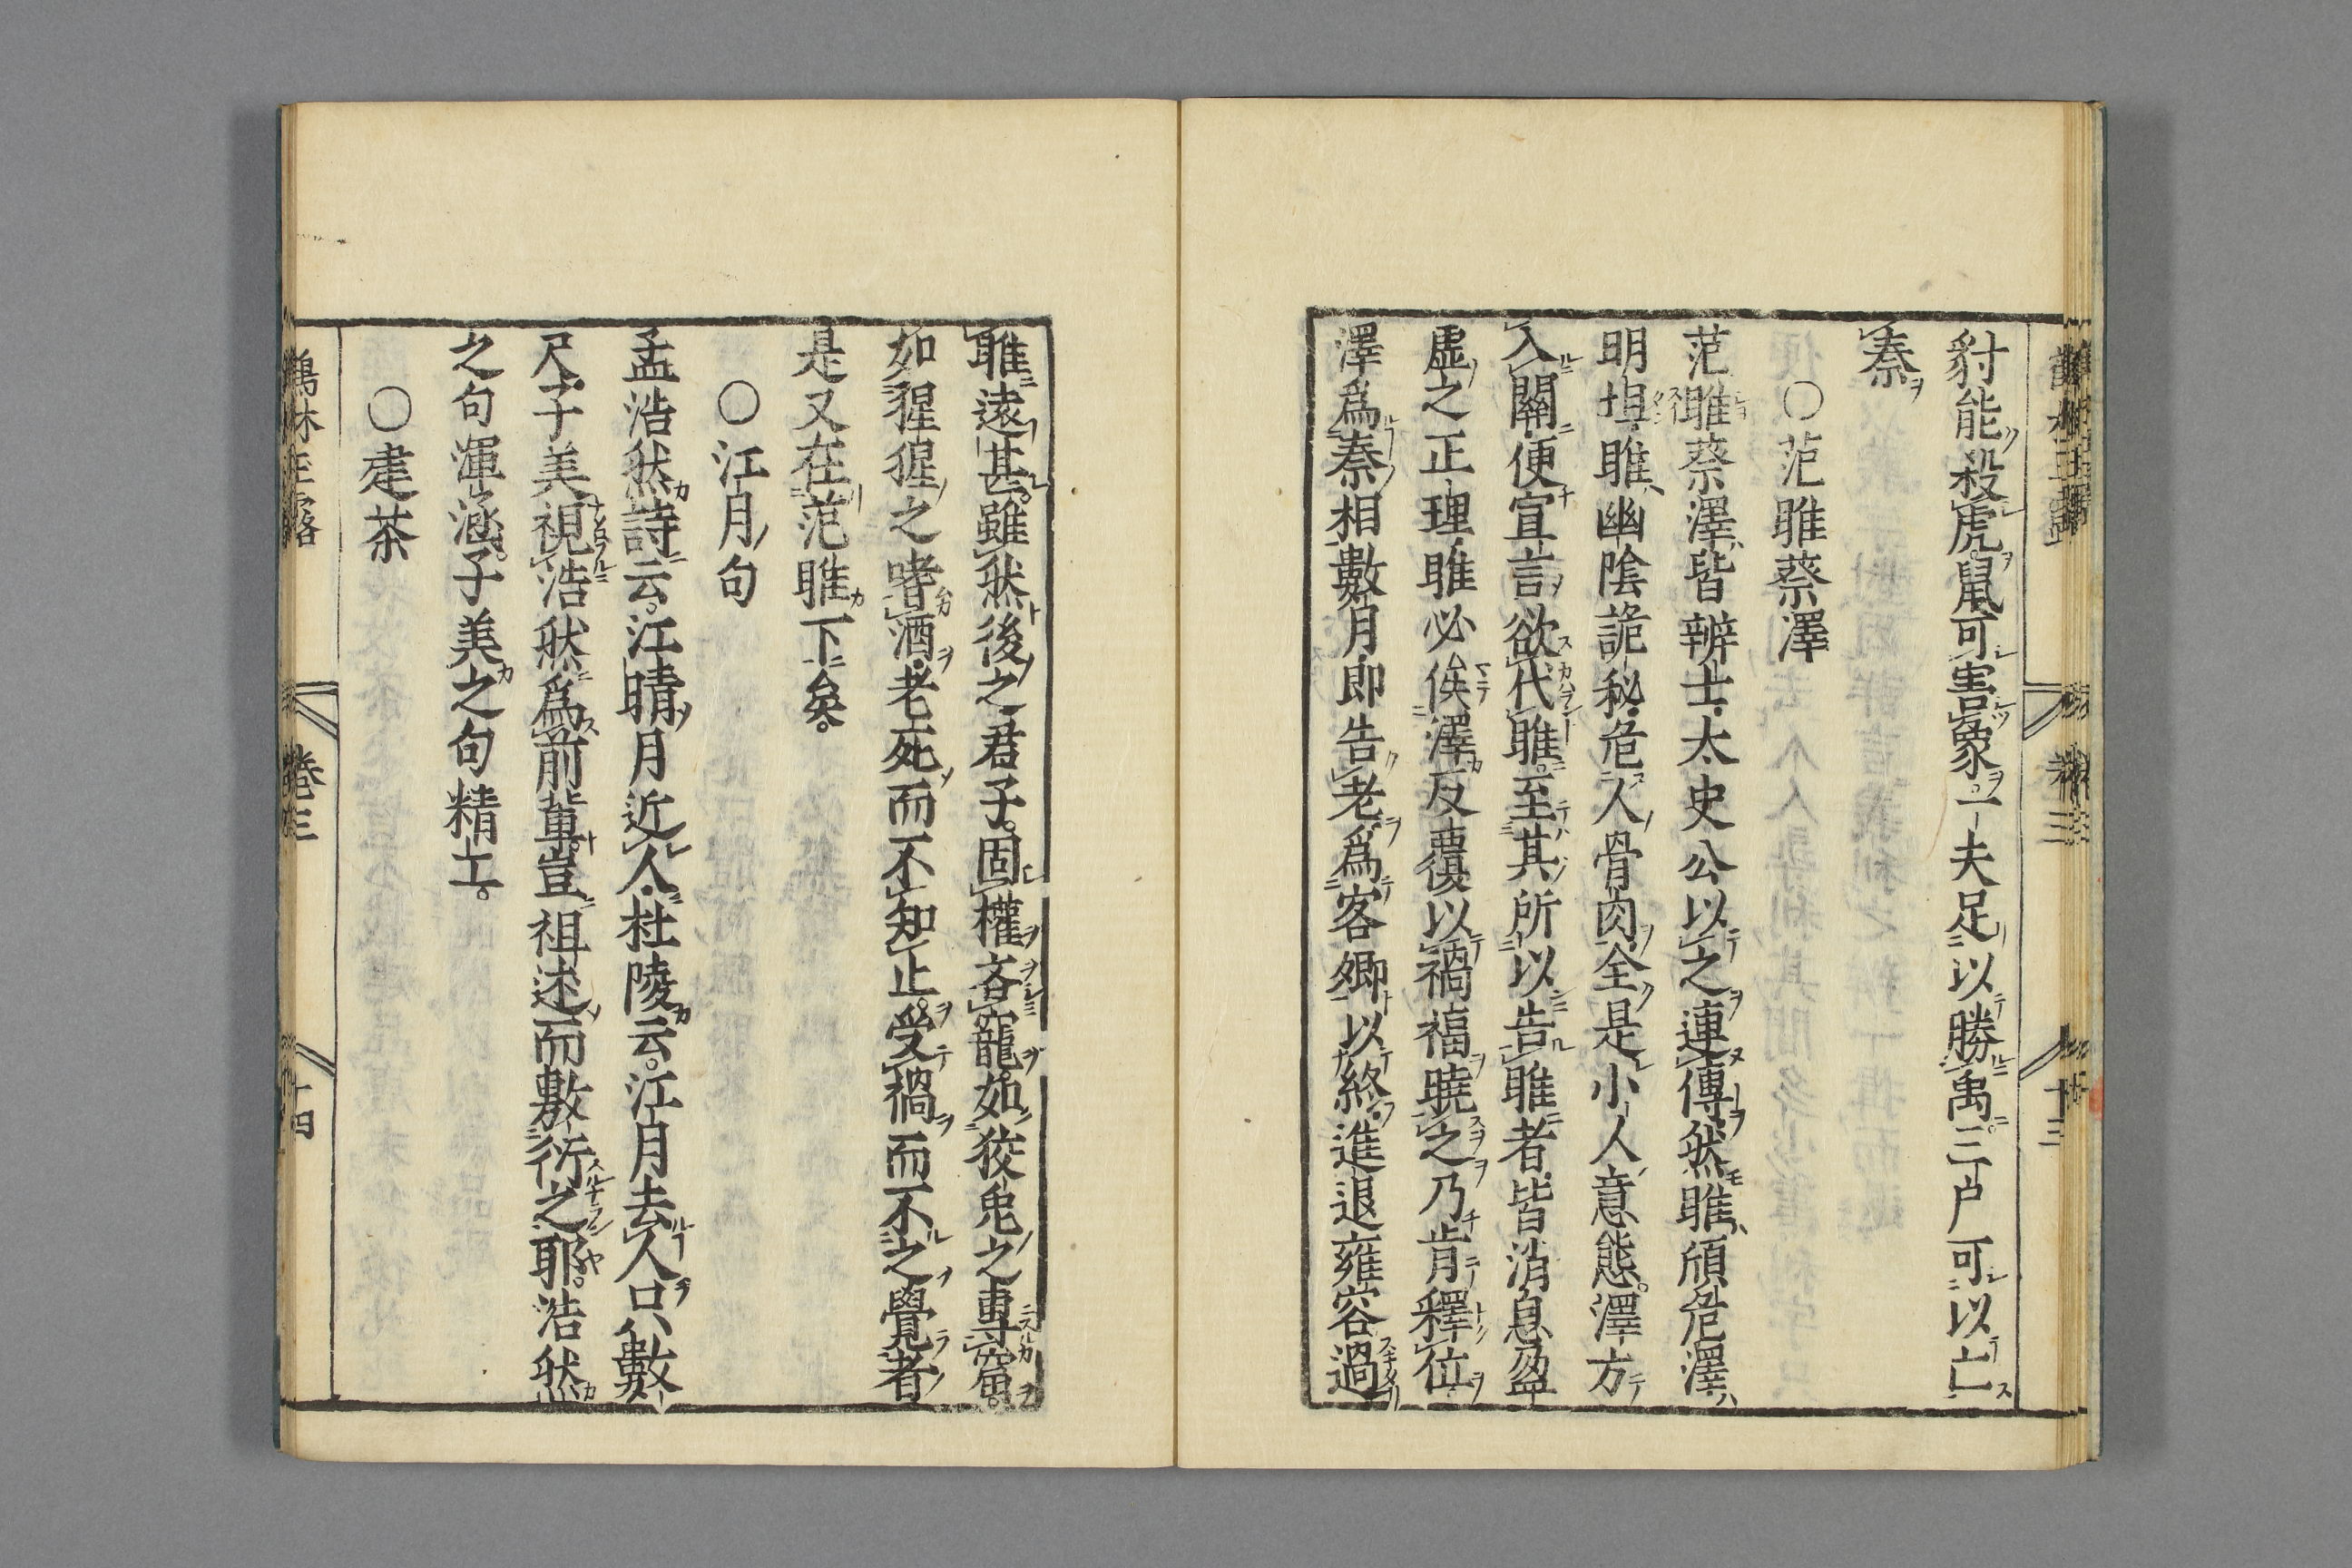 豺能殺虎鼠可害象一夫足以勝禹三戸可以亡
秦
○范雎蔡澤
范雎蔡澤皆辨士太史公以之連傳然雎頎危澤
明坦雎幽陰詭秘危人骨肉全是小人意態澤方
入關便宣言欲代雎至其所以告雎者皆消息盈
虛之正理雎必俟澤反覆以禍福曉之乃肯釋位
澤爲秦相數月即告老爲客卿以終進退雍容過
雎遠甚雖然後之君子固權吝寵如狡兔之專窟
如猩猩之嗜酒老死而不知止受禍而不之覺者
是又在范雎下矣
○江月句
孟浩然詩云江晴月近人杜陵云江月去人只數
尺子美視浩然爲前輩豈祖述而敷衍之耶浩然
之句渾涵子美之句精工
○建茶
卷三
十三
卷三
十四